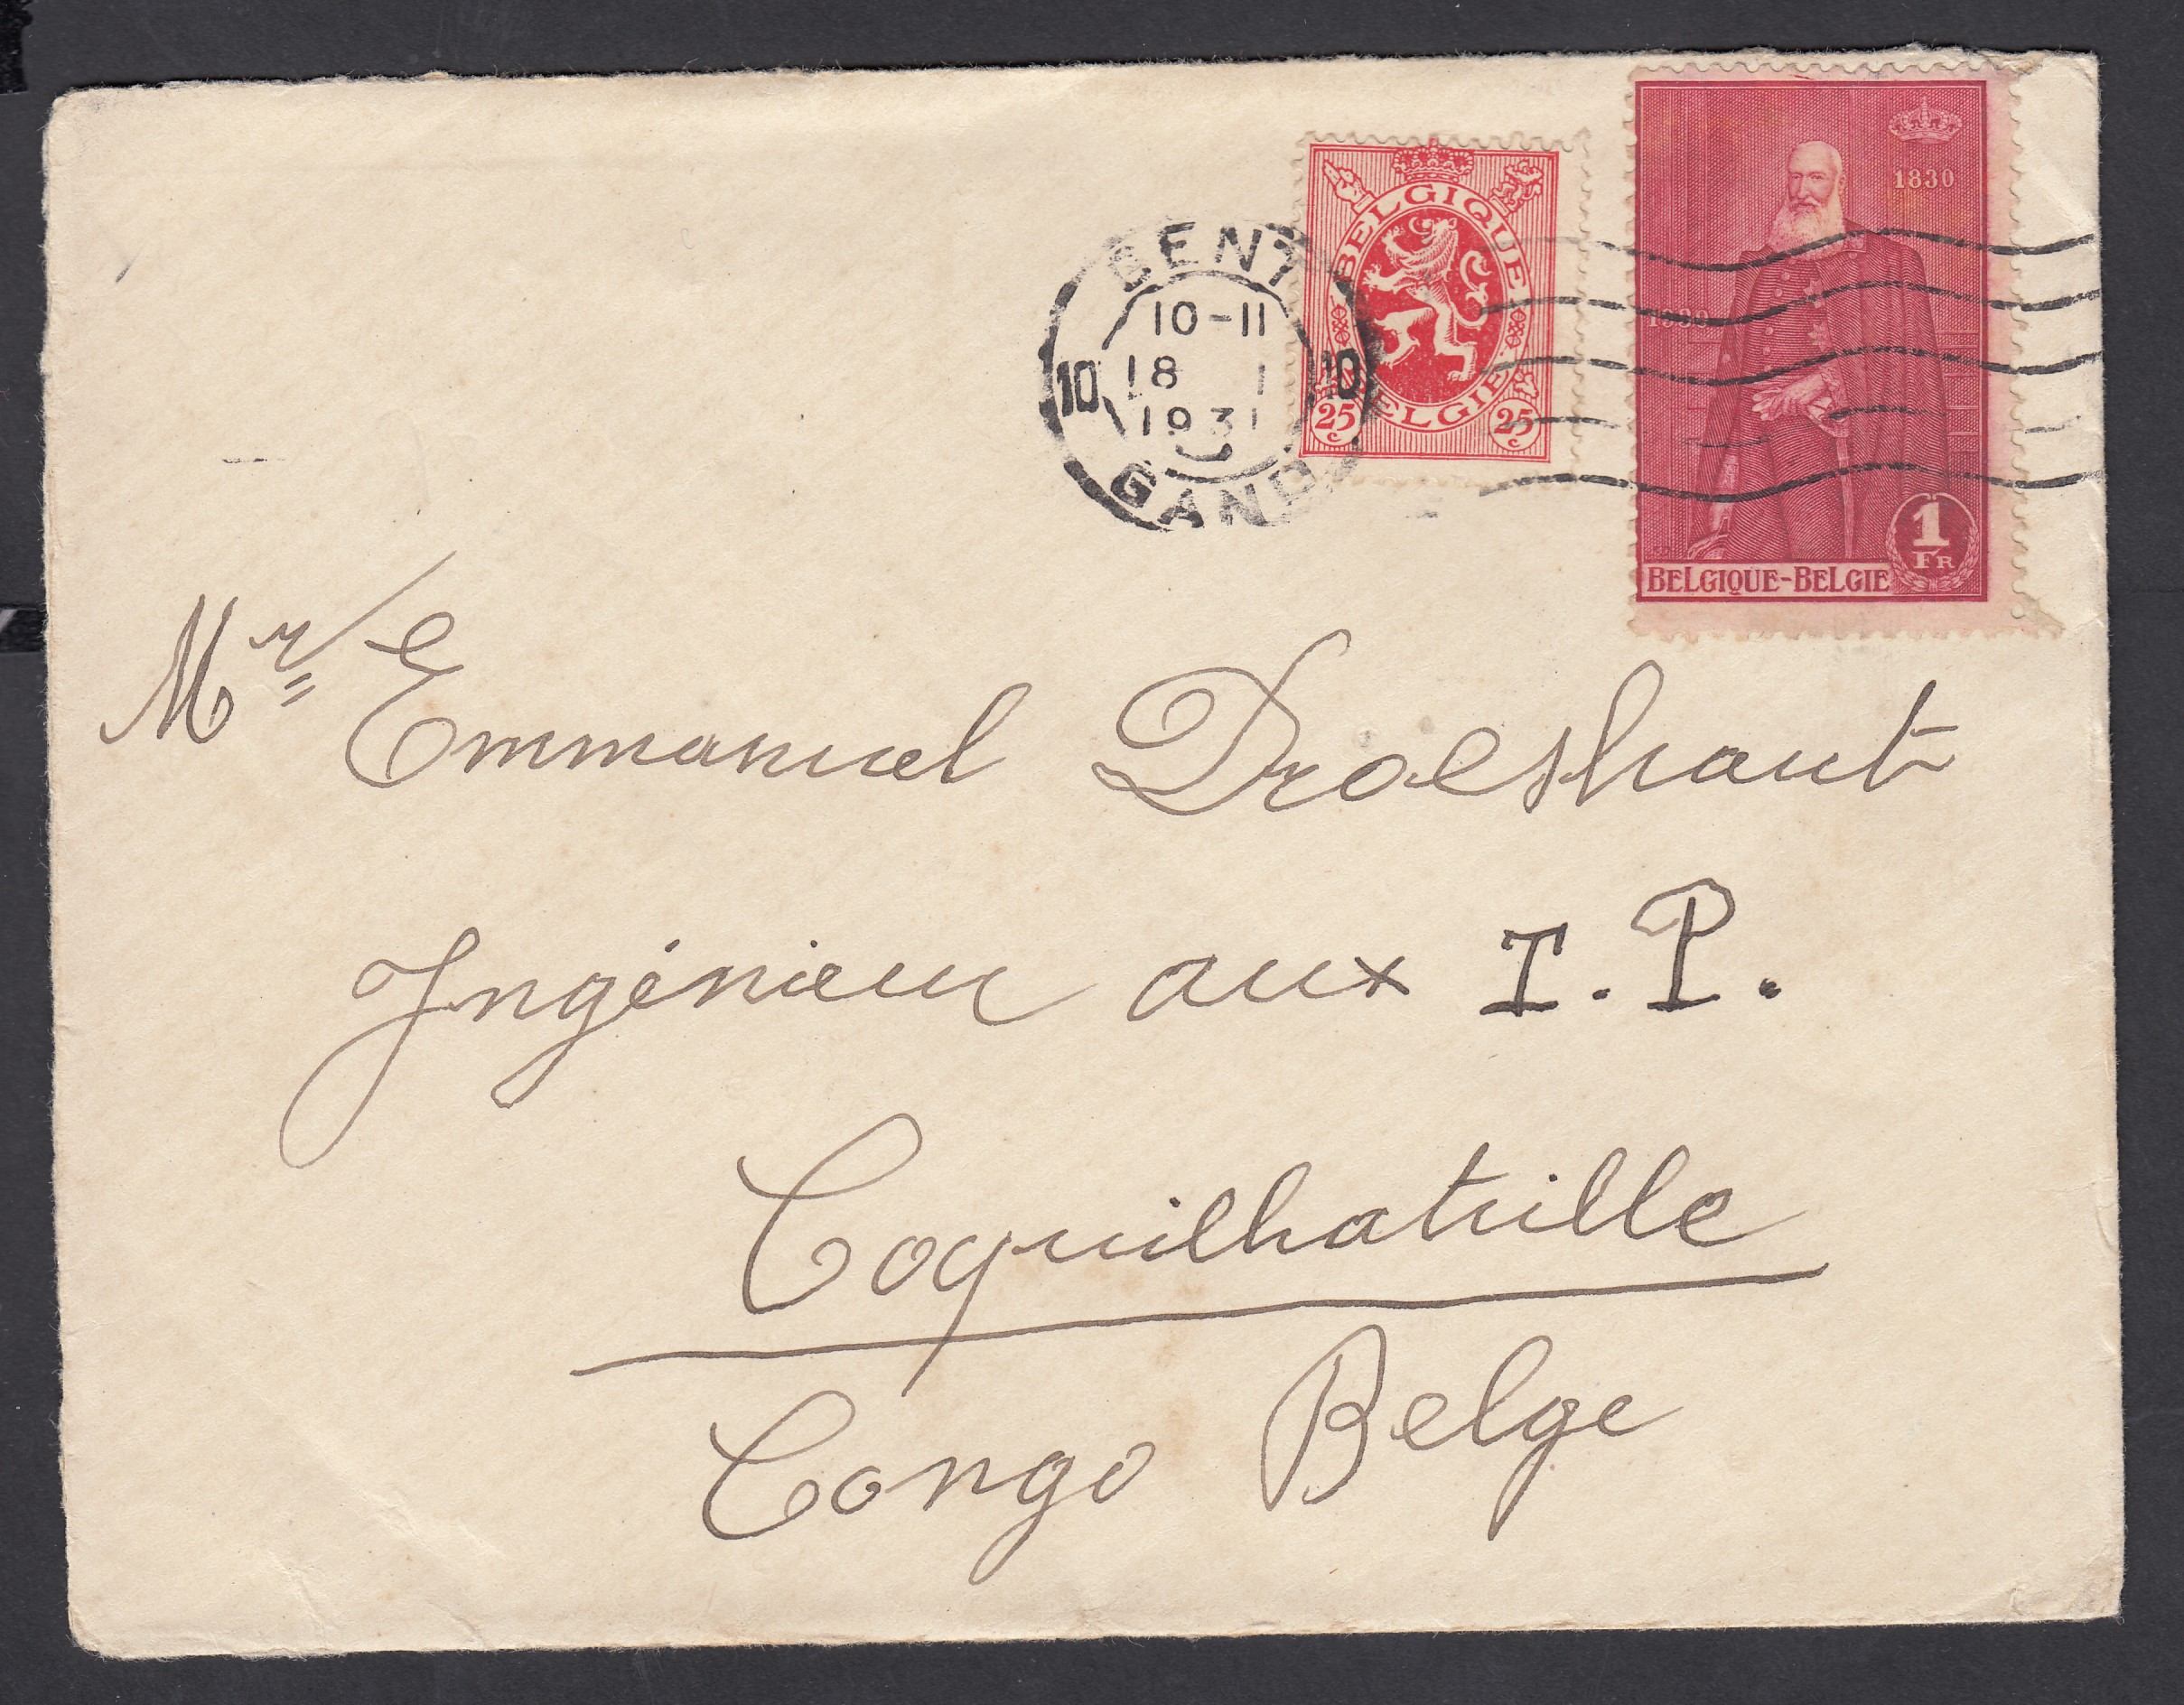 1830
BELGIQUE
1930
GENT
10-11
10 18 1 10
1931
GAND
25c BELGIE 25c
1 FR
BELGIQUE-BELGIE
Mr Emmanuel Droeshaut
Ingénieur aux T.P.
Coquilhatville
Congo Belge